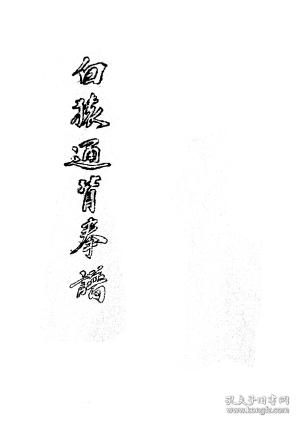 白猿通背拳譜
孔夫子旧书网